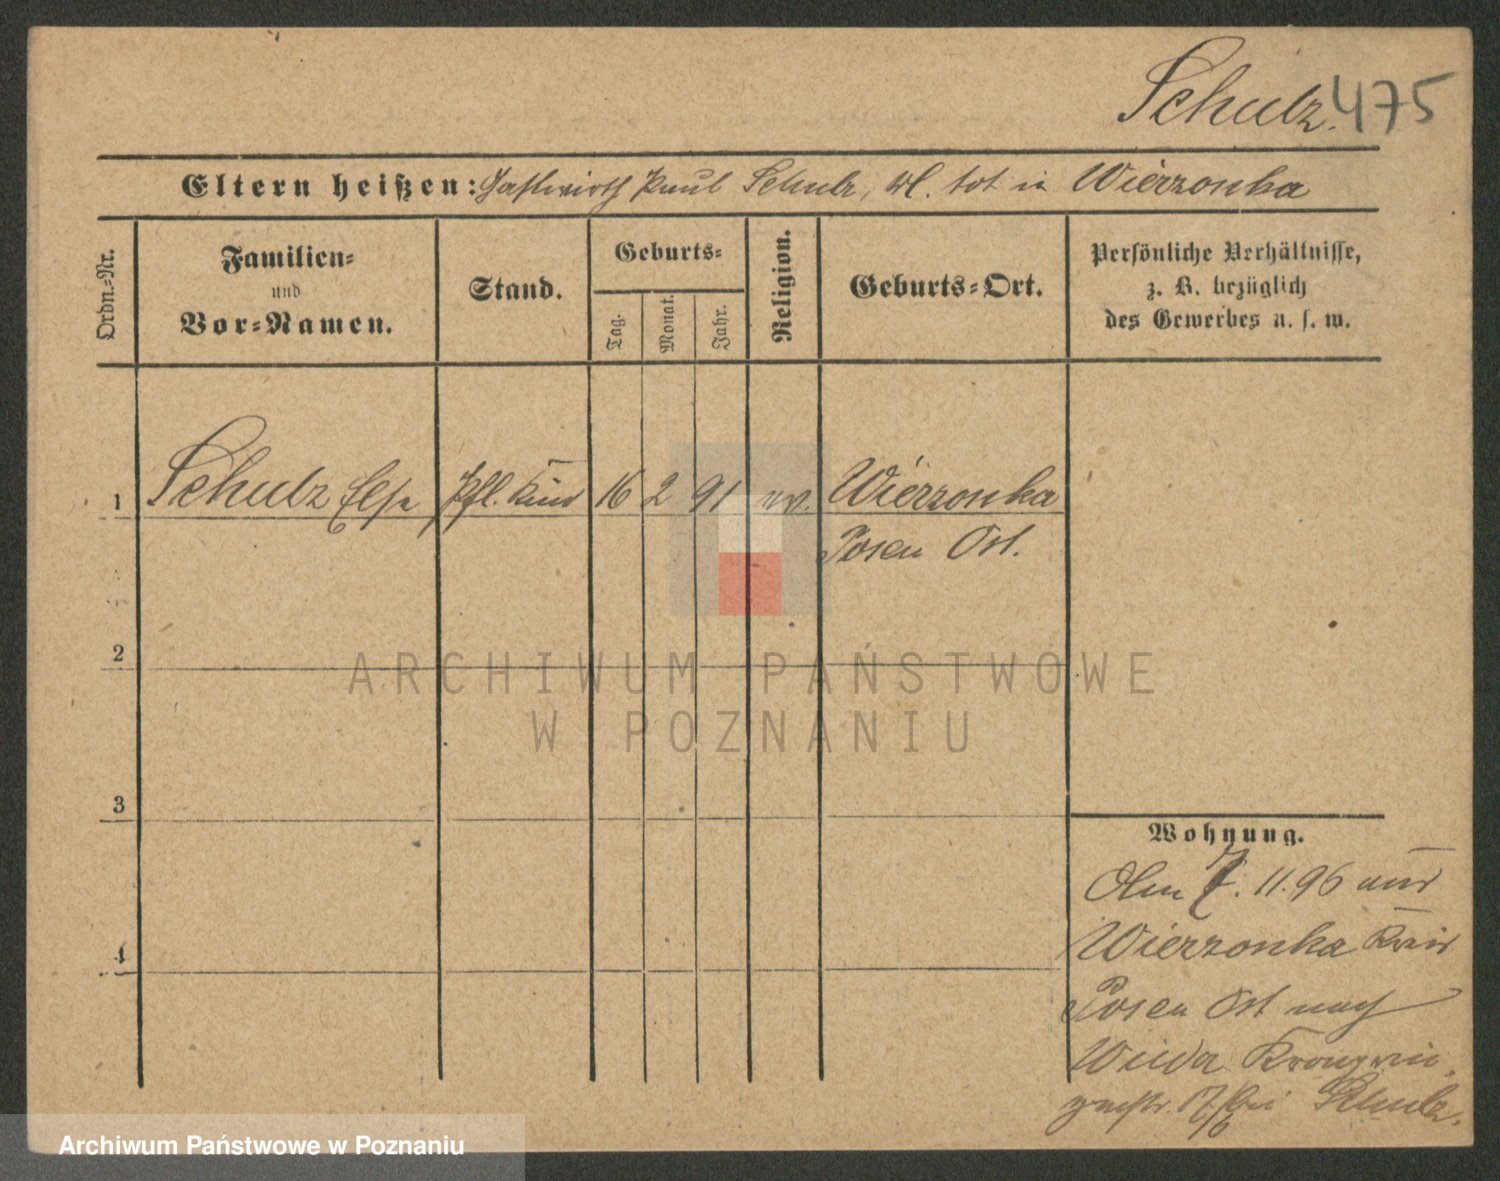 Schulz. 475
Eltern heißen: Gastwirth Paul Schulz, tot in Wierzonka
Ordn.-Nr.
Familien-
und
Vor-Namen.
Stand.
Geburts-
Tag.
Monat.
Jahr.
Religion.
Geburts-Ort.
Persönliche Verhältnisse,
z. B. bezüglich
des Gewerbes u. s. w.
1 Schulz Else Pfl. Kind 16 2 91 ev. Wierzonka
Posen Ost.
2
3
4
Wohnung.
Am 7. 11. 96 aus
Wierzonka Kreis
Posen Ost nach
Wilda Kronprin-
zenstr. bei Schulz.
ARCHIWUM PAŃSTWOWE
W POZNANIU
Archiwum Państwowe w Poznaniu